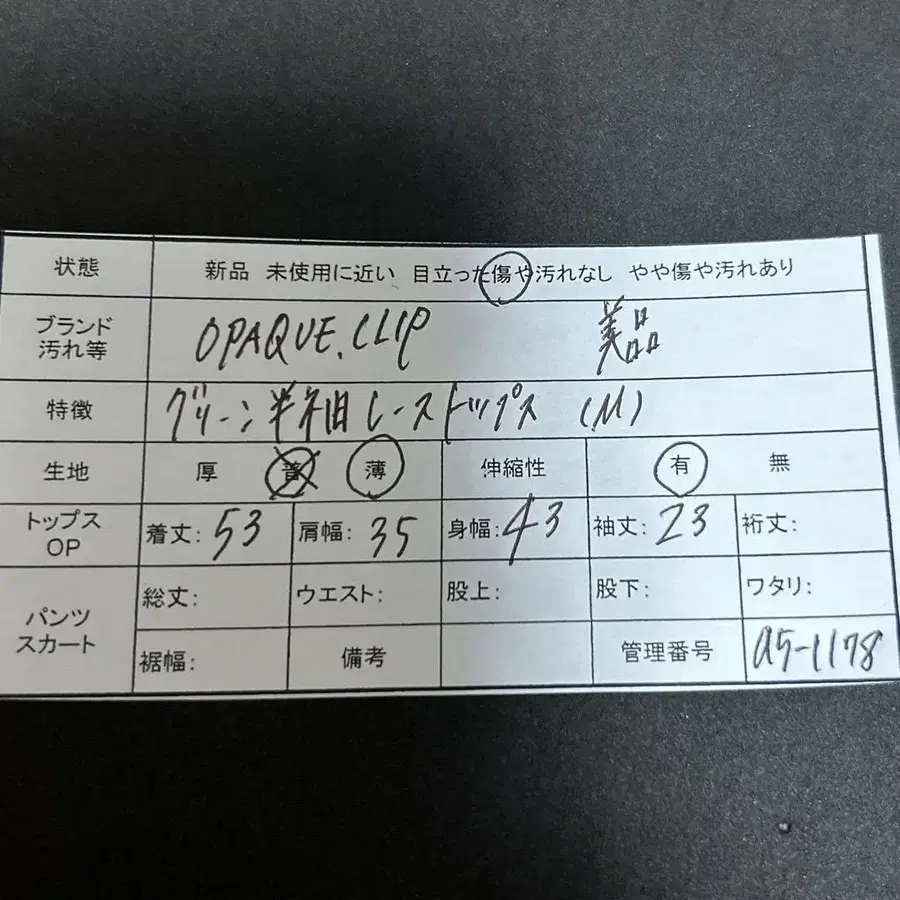 状態 新品 未使用に近い 目立った傷や汚れなし やや傷や汚れあり
ブランド
汚れ等 OPAQUE.CLIP 美品
特徴 グリーン半袖レーストップス (M)
生地 厚 普 薄 伸縮性 有 無
トップス
OP 着丈: 53 肩幅: 35 身幅: 43 袖丈: 23 裄丈:
パンツ
スカート 総丈: ウエスト: 股上: 股下: ワタリ:
裾幅: 備考 管理番号 a5-1178